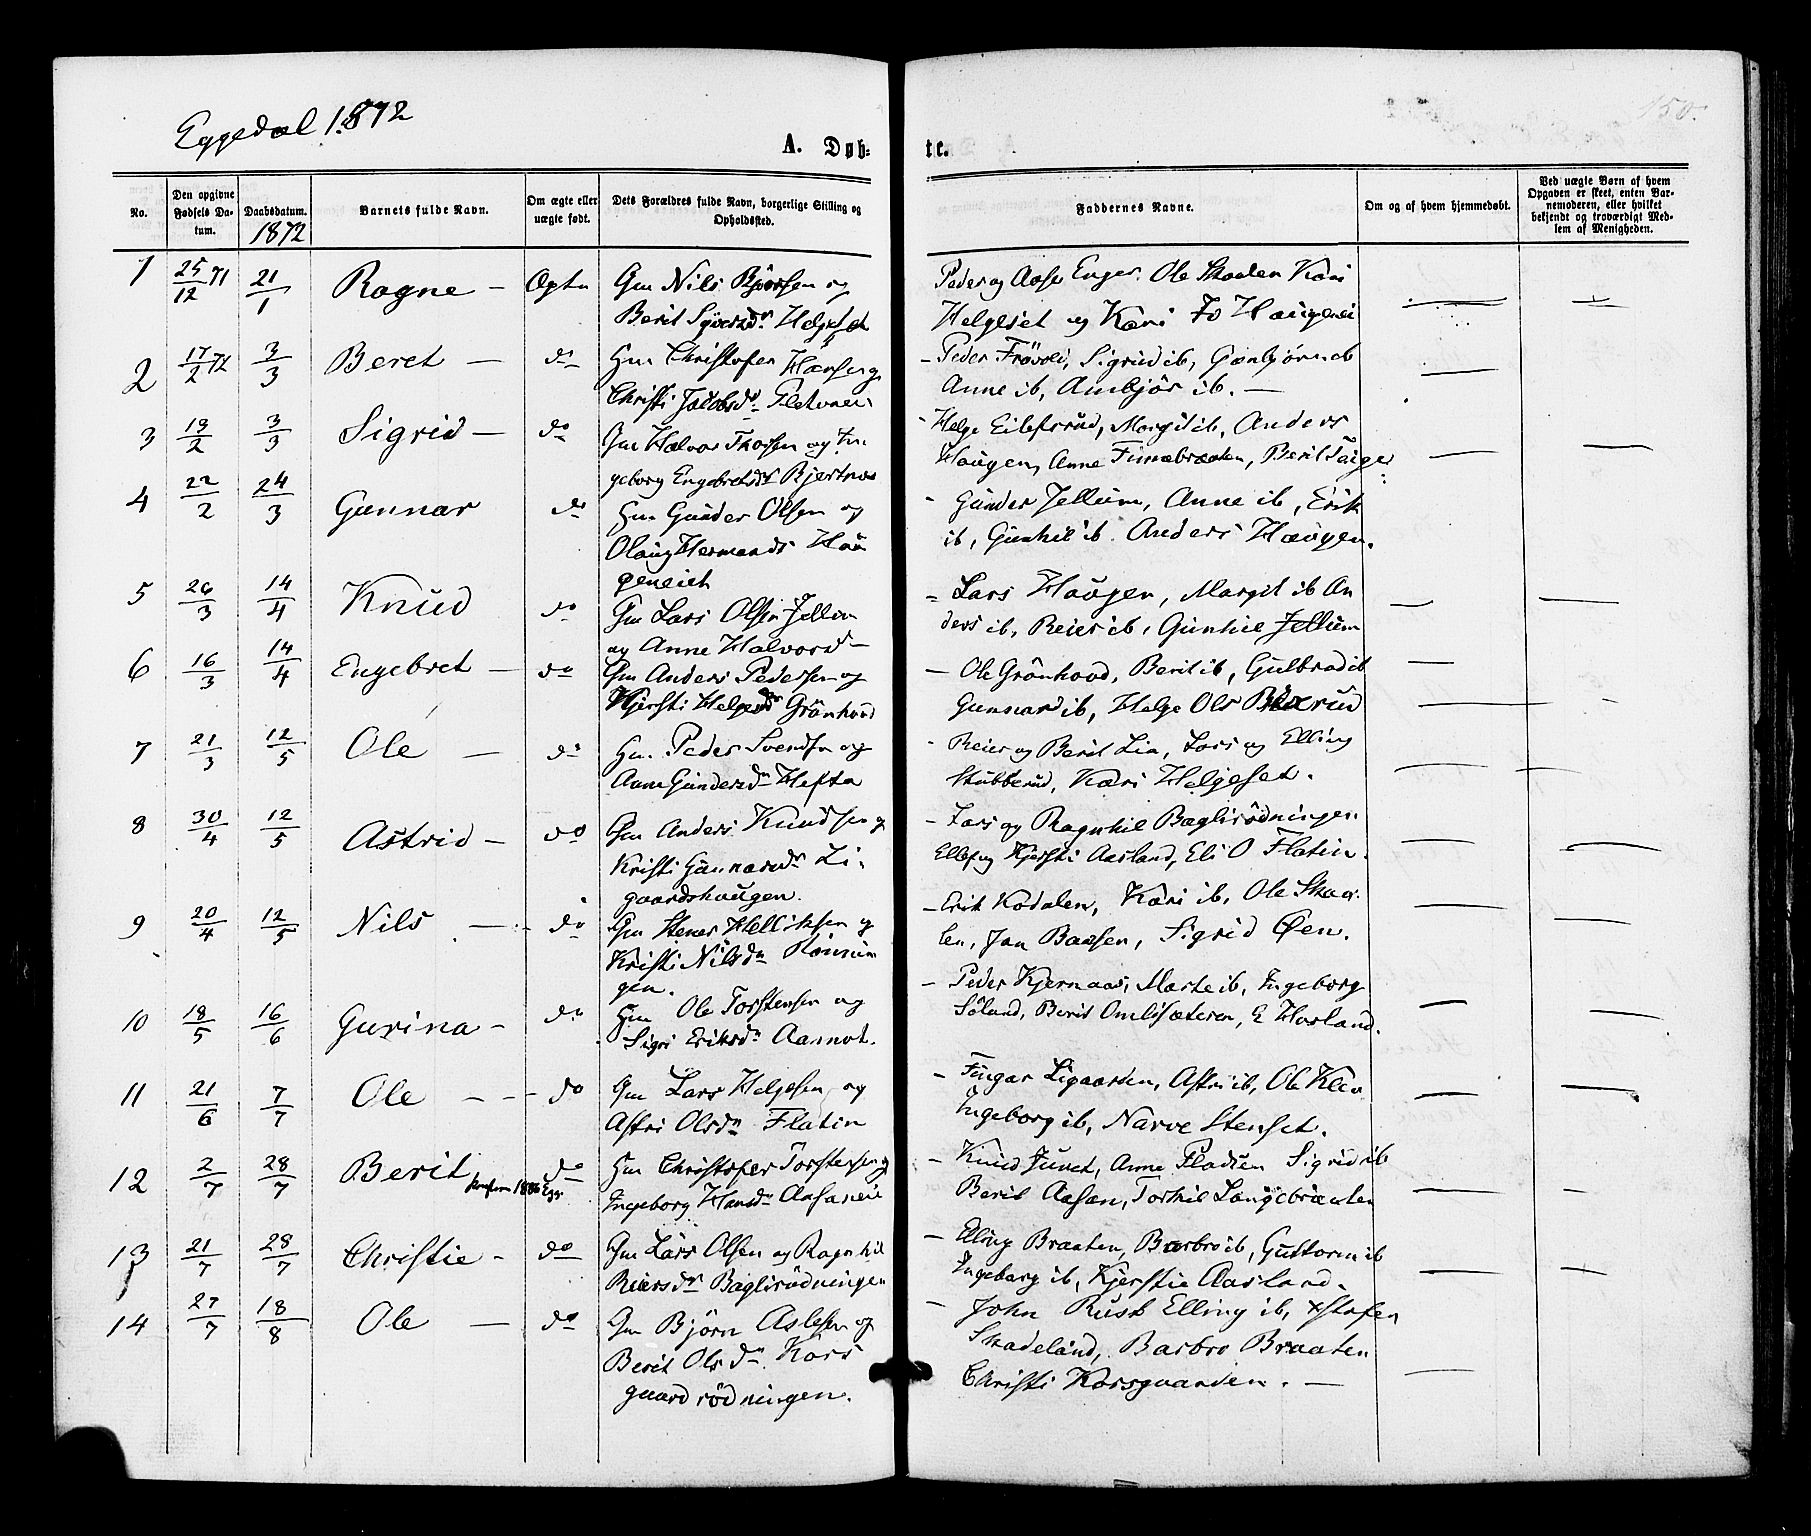 Eggedal 1872
150.
A. Døb-
te.
No.
Den opgivne Fødsels Datum.
Daabsdatum.
1872
Barnets fulde Navn.
Om ægte eller uægte født.
Dets Forældres fulde Navn, borgerlige Stilling og Opholdssted.
Faddernes Navne.
Om og af hvem hjemmedøbt.
Ved uægte Børn af hvem Opgaven er skeet, enten Barnemoderen, eller hvilket bekjendt og troværdigt Medlem af Menigheden.
1 25/12 71 21/1 Ragne – Ægte Gm Nils
og
Berit Syversdr Helgeset
Peder og Aase Enger. Ole Skaalen Kari
Helgeset og Kari Haugenei
2 17/2 72 3/3 Beret – do Hm Christofer Hansen og
Christi Jacobsdr
– Peder Frøvoll, Sigrid ib,
Anne ib, Anbjør ib. –
3 19/2 3/3 Sigrid – do Gm Halvor Thorsen og In
geborg Engebretsdr Bjertnæs
Helge Eilefsrud, Margit ib, Anders
Haugen, Anne Finnebraaten, Berit
4 22/2 24/3 Gunnar do Hm Gunder Olsen og
Olaug Hermandsd Hau
geneiet
– Gunder Jellum, Anne ib, Erik
ib, Gunhil ib. Anders Haugen.
5 26/3 14/4 Knud do Gm Lars Olsen Jellum
og Anne Halvorsd –
– Lars Haugen, Margit ib An
ders ib, Reier ib, Gunhil Jellum
6 16/3 14/4 Engebret – do Gm Anders Pedersen og
Kjersti Helgesdr Grønhovd
– Ole Grønhovd, Berit ib, Gulbrand ib
Gunnar ib, Helge Ols
7 21/3 12/5 Ole – do Hm. Peder Svendsen og
Anne Gundersdr Hefte
– Reier og Berit Lia, Lars og Elling
Stubberud, Kari Helgeset.
8 30/4 12/5 Astrid – do Gm Anders Knudsen og
Kristi Gunnarsdr Li-
gaardshaugen.
– Lars og Ragnhil Baglirødningen
Ellef og Kjersti Aasland, Eli O Flatin.
9 20/4 12/5 Nils – do Gm Stener Helliksen og
Kristi Nilsdr
gen.
– Erik Kodalen, Kari ib, Ole Skaa
len, Jan Baasen, Sigrid Øen.
10 18/5 16/6 Gurina – do Hm Ole Torstensen og
Sigri Eriksdr Aamot.
– Peder Kjernaas, Marte ib, Ingeborg
Søland, Berit Omlisæteren, E Hovland.
11 21/6 7/7 Ole – – do Gm Lars Helgesen og
Astri Olsdr Flatin
– Fingar Ligaarden, Astri ib, Ole Kleiv
Ingeborg ib, Narve Stenset.
12 2/7 28/7 Berit do Hm Christofer Torstensen og
Konfirm 1886 Egg.
Ingeborg Hansdr Aasanei
– Knud Juvet, Anne Sigrid ib
Berit Aasan, Torkil Langebraaten
13 21/7 28/7 Christie – do Gm Lars Olsen og Ragnhil
Reiersdr Baglirødningen
– Elling Braaten, Barbro ib, Guttorm ib
Ingeborg ib, Kjerstie Aasland.
14 27/7 18/8 Ole – do Gm Bjørn Aslesen og
Berit Olsdr. Kors
gaardrødningen.
– John Rust Elling ib, Xstofer
Skadeland, Barbro Braaten
Christi Korsgaarden. –